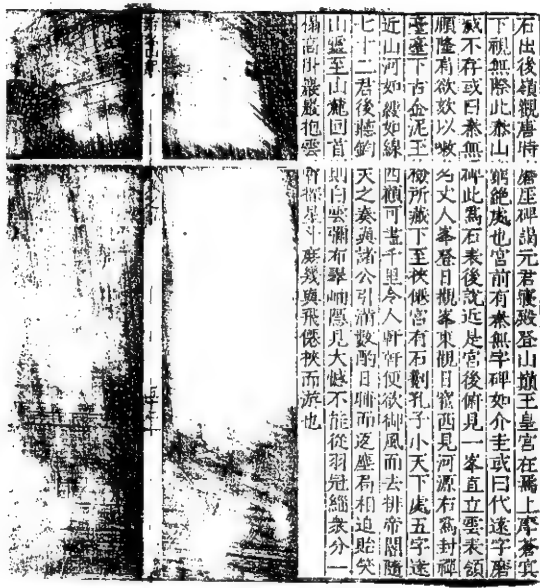 石出後嶺觀唐時磨崖碑謁元君寢殿登山巔玉皇宮在焉上摩蒼冥
下視無際此泰山窮絕處也宮前有秦無字碑如介圭或曰代遠字磨
滅不存或曰秦無碑此為石表後說近是宮後俯見一峯直立雲表頷
順隆有欲欬以名丈人峯登日觀峯東觀日窟西見河源右為封禪
臺臺下古金泥玉檢所藏下至僊宮有石劖孔子小天下處五字遠
近山河如綬如線四顧可盡千里令人軒軒便欲御風而去排帝閽隨
七十二君後聽鈞天之奏與諸公引滿數酌日晡而返塵局相迫貽笑
山靈至山麓回首則白雲彌布翠岫隱見大憾不能從羽冠緇衆分一
榻高卧巖巖抱雲探星斗庶幾與飛僊挾而游也